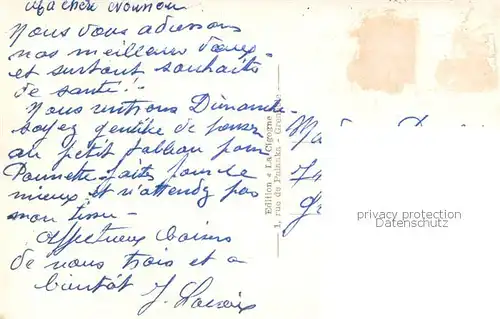 Ma chère Nounou
Nous vous adressons
nos meilleurs vœux
et surtout souhaits
de santé!
Nous rentrons Dimanche
soyez gentille de penser
au petit tablau pour
faites pour le
mieux et n'attendez pas
mon tissu -
Affectueux baisers
de nous trois et a
bientôt J. Lacroix
Edition « La Cigogne »
1, rue de Palanka - Grenoble
privacy protection
Datenschutz